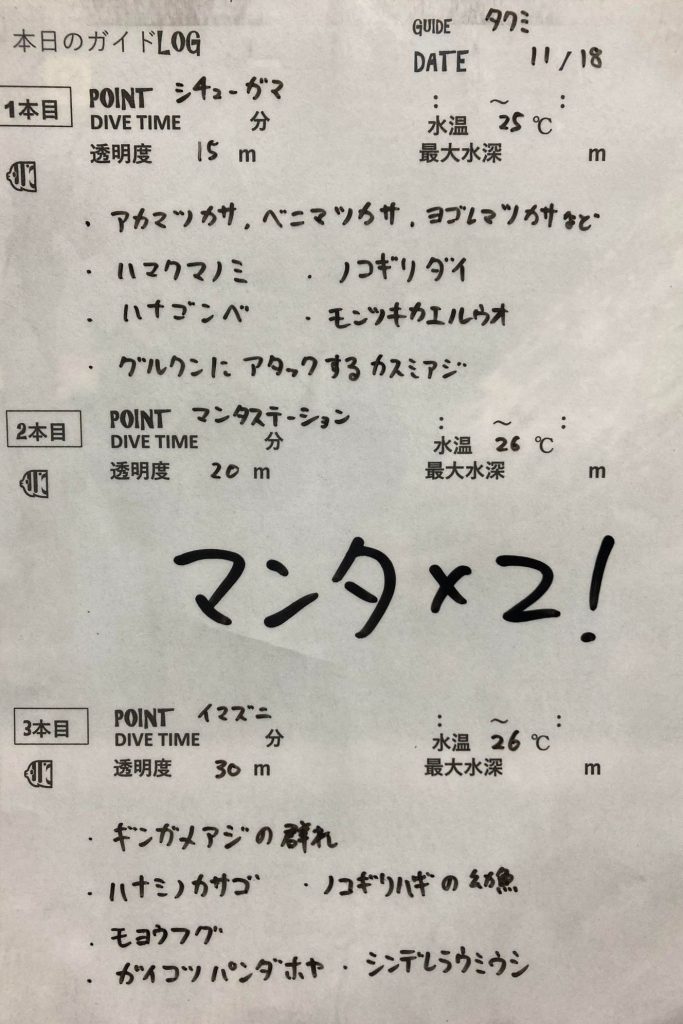 本日のガイドLOG
GUIDE タクミ
DATE 11/18
1本目
POINT シチューガマ
: ～ :
DIVE TIME 分
水温 25 ℃
透明度 15 m
最大水深 m
・アカマツカサ, ベニマツカサ, ヨゴレマツカサなど
・ハマクマノミ ・ノコギリダイ
・ハナゴンベ ・モンツキカエルウオ
・グルクンにアタックするカスミアジ
2本目
POINT マンタステーション
: ～ :
DIVE TIME 分
水温 26 ℃
透明度 20 m
最大水深 m
マンタ×2!
3本目
POINT イマズニ
: ～ :
DIVE TIME 分
水温 26 ℃
透明度 30 m
最大水深 m
・ギンガメアジの群れ
・ハナミノカサゴ ・ノコギリハギの幼魚
・モヨウフグ
・ガイコツパンダホヤ ・シンデレラウミウシ